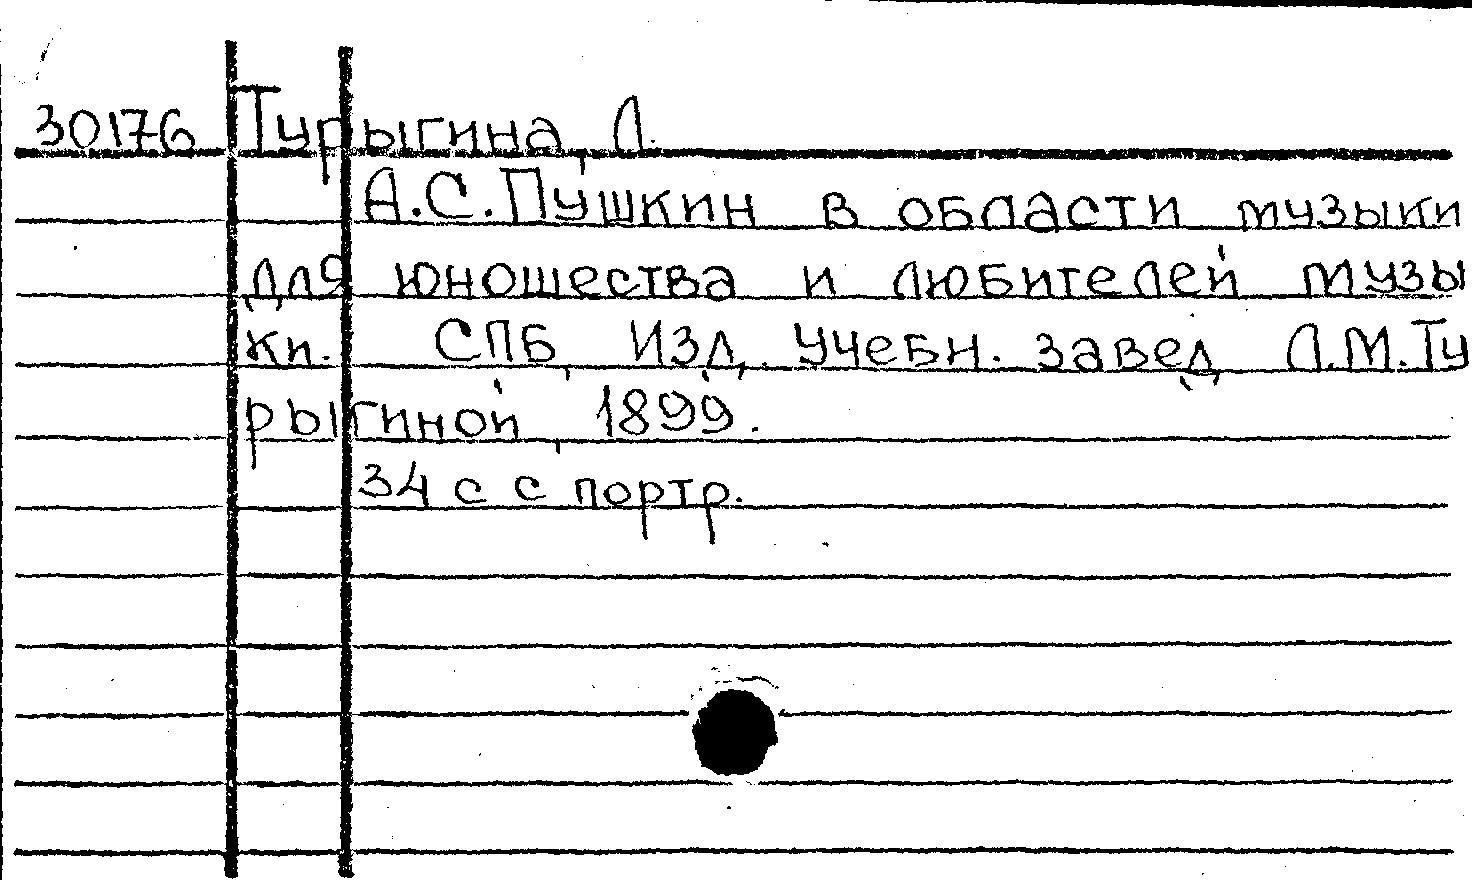 30176 Турыгина, Л.
А.С.Пушкин в области музыки
для юношества и любителей музы
ки. СПБ, Изд. Учебн. завед, Л.М.Ту
рыгиной, 1899.
34 с с портр.